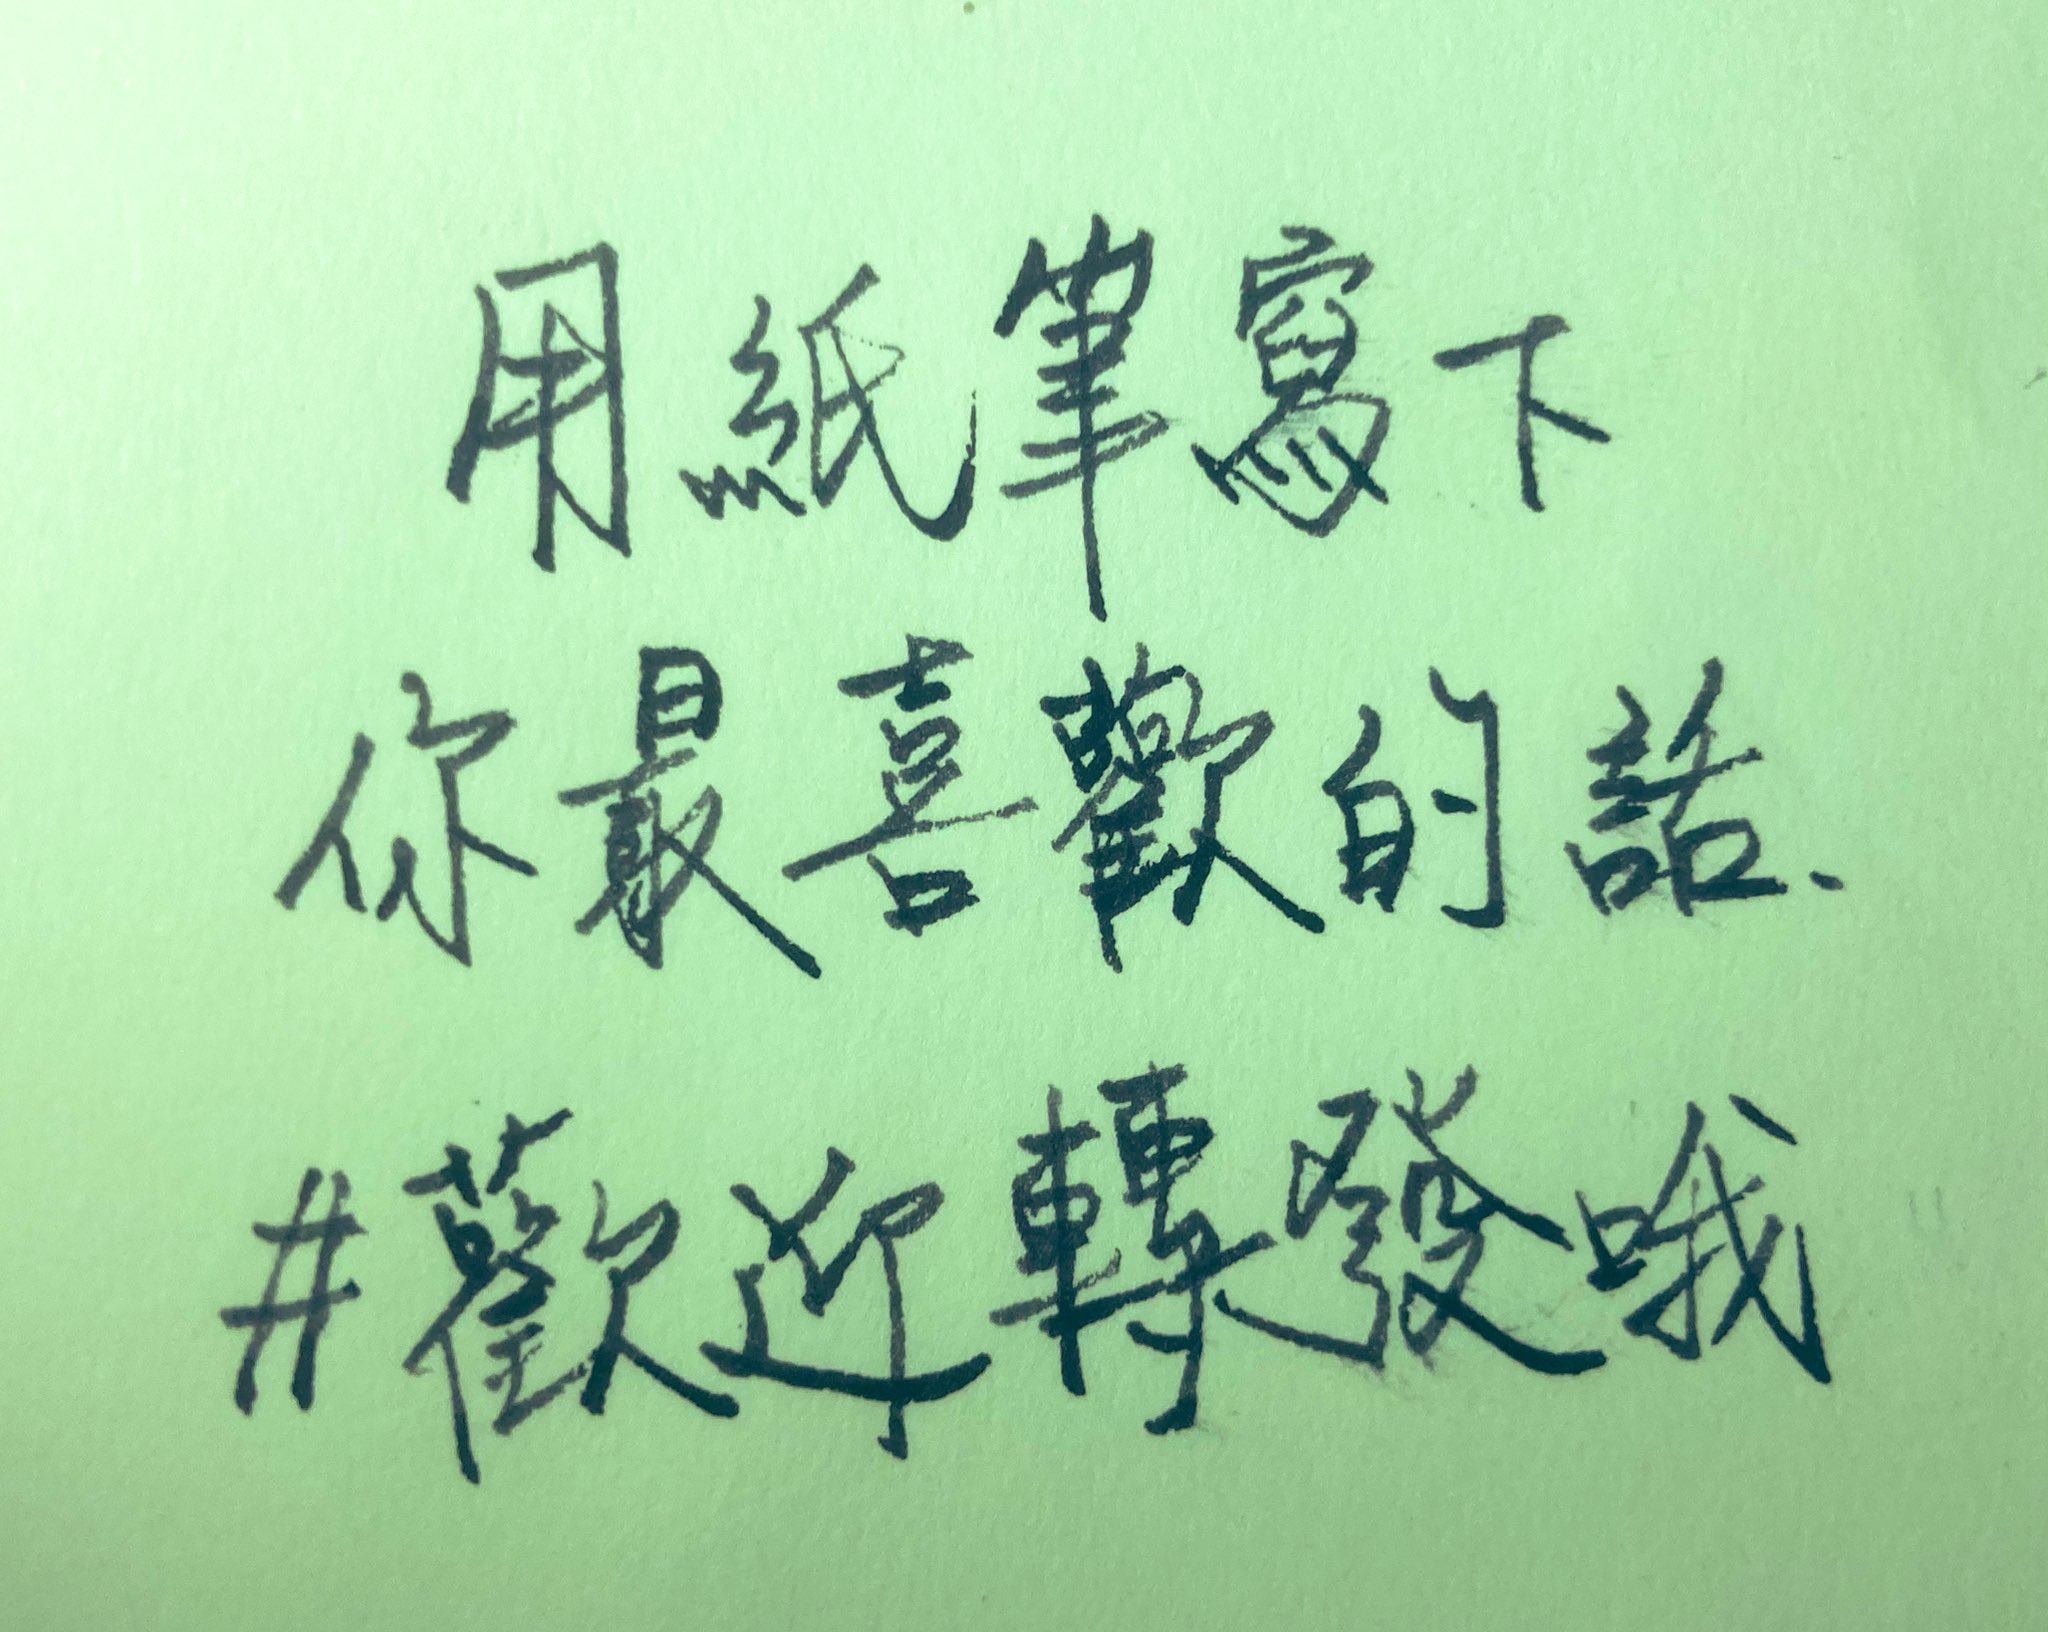 用紙筆寫下
你最喜歡的話.
#歡迎轉發哦